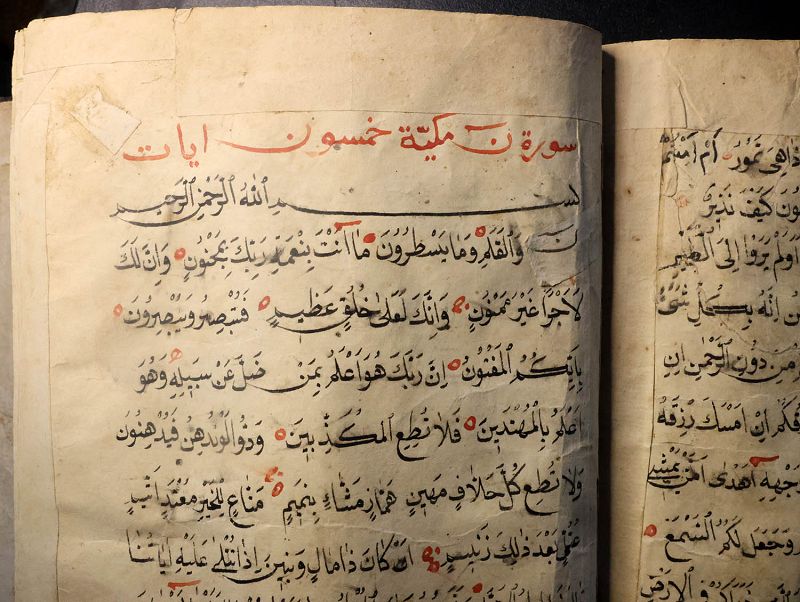 سورة ن مكيّة خمسون ايات
بسم الله الرَّحْمٰنِ الرَّحِيمِ
نٓ وَالْقَلَمِ وَمَا يَسْطُرُونَ مَآ اَنْتَ بِنِعْمَةِ رَبِّكَ بِمَجْنُونٍ وَاِنَّ لَكَ
لَاَجْرًا غَيْرَ مَمْنُونٍ وَاِنَّكَ لَعَلٰى خُلُقٍ عَظِيمٍ فَسَتُبْصِرُ وَيُبْصِرُونَ
بِاَيِّكُمُ الْمَفْتُونُ اِنَّ رَبَّكَ هُوَ اَعْلَمُ بِمَنْ ضَلَّ عَنْ سَبِيلِهِ وَهُوَ
اَعْلَمُ بِالْمُهْتَدِينَ فَلَا تُطِعِ الْمُكَذِّبِينَ وَدُّوا لَوْ تُدْهِنُ فَيُدْهِنُونَ
وَلَا تُطِعْ كُلَّ حَلَّافٍ مَهِينٍ هَمَّازٍ مَشَّاءٍ بِنَمِيمٍ مَنَّاعٍ لِلْخَيْرِ مُعْتَدٍ اَثِيمٍ
عُتُلٍّ بَعْدَ ذٰلِكَ زَنِيمٍ اَنْ كَانَ ذَا مَالٍ وَبَنِينَ اِذَا تُتْلٰى عَلَيْهِ اٰيَاتُنَا
هِىَ تَمُورُ اَمْ اَمِنْتُمْ
كَيْفَ نَذِيرِ
اَوَلَمْ يَرَوْا اِلَى الطَّيْرِ
اِنَّهُ بِكُلِّ شَىْءٍ
مِنْ دُونِ الرَّحْمٰنِ اِنِ
اِنْ اَمْسَكَ رِزْقَهُ
وَجْهِهِ اَهْدٰى اَمَّنْ يَمْشِى
وَجَعَلَ لَكُمُ السَّمْعَ
فِى الْاَرْضِ